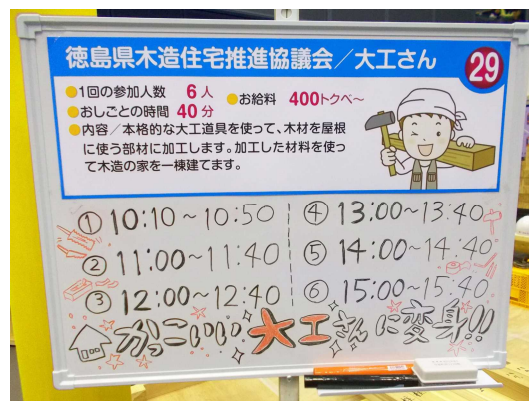 徳島県木造住宅推進協議会／大工さん
29
●1回の参加人数 6人
●おしごとの時間 40分
●お給料 400トクペ～
●内容／本格的な大工道具を使って、木材を屋根
に使う部材に加工します。加工した材料を使っ
て木造の家を一棟建てます。
① 10:10～10:50
② 11:00～11:40
③ 12:00～12:40
④ 13:00～13:40
⑤ 14:00～14:40
⑥ 15:00～15:40
かっこいい大工さんに変身!!